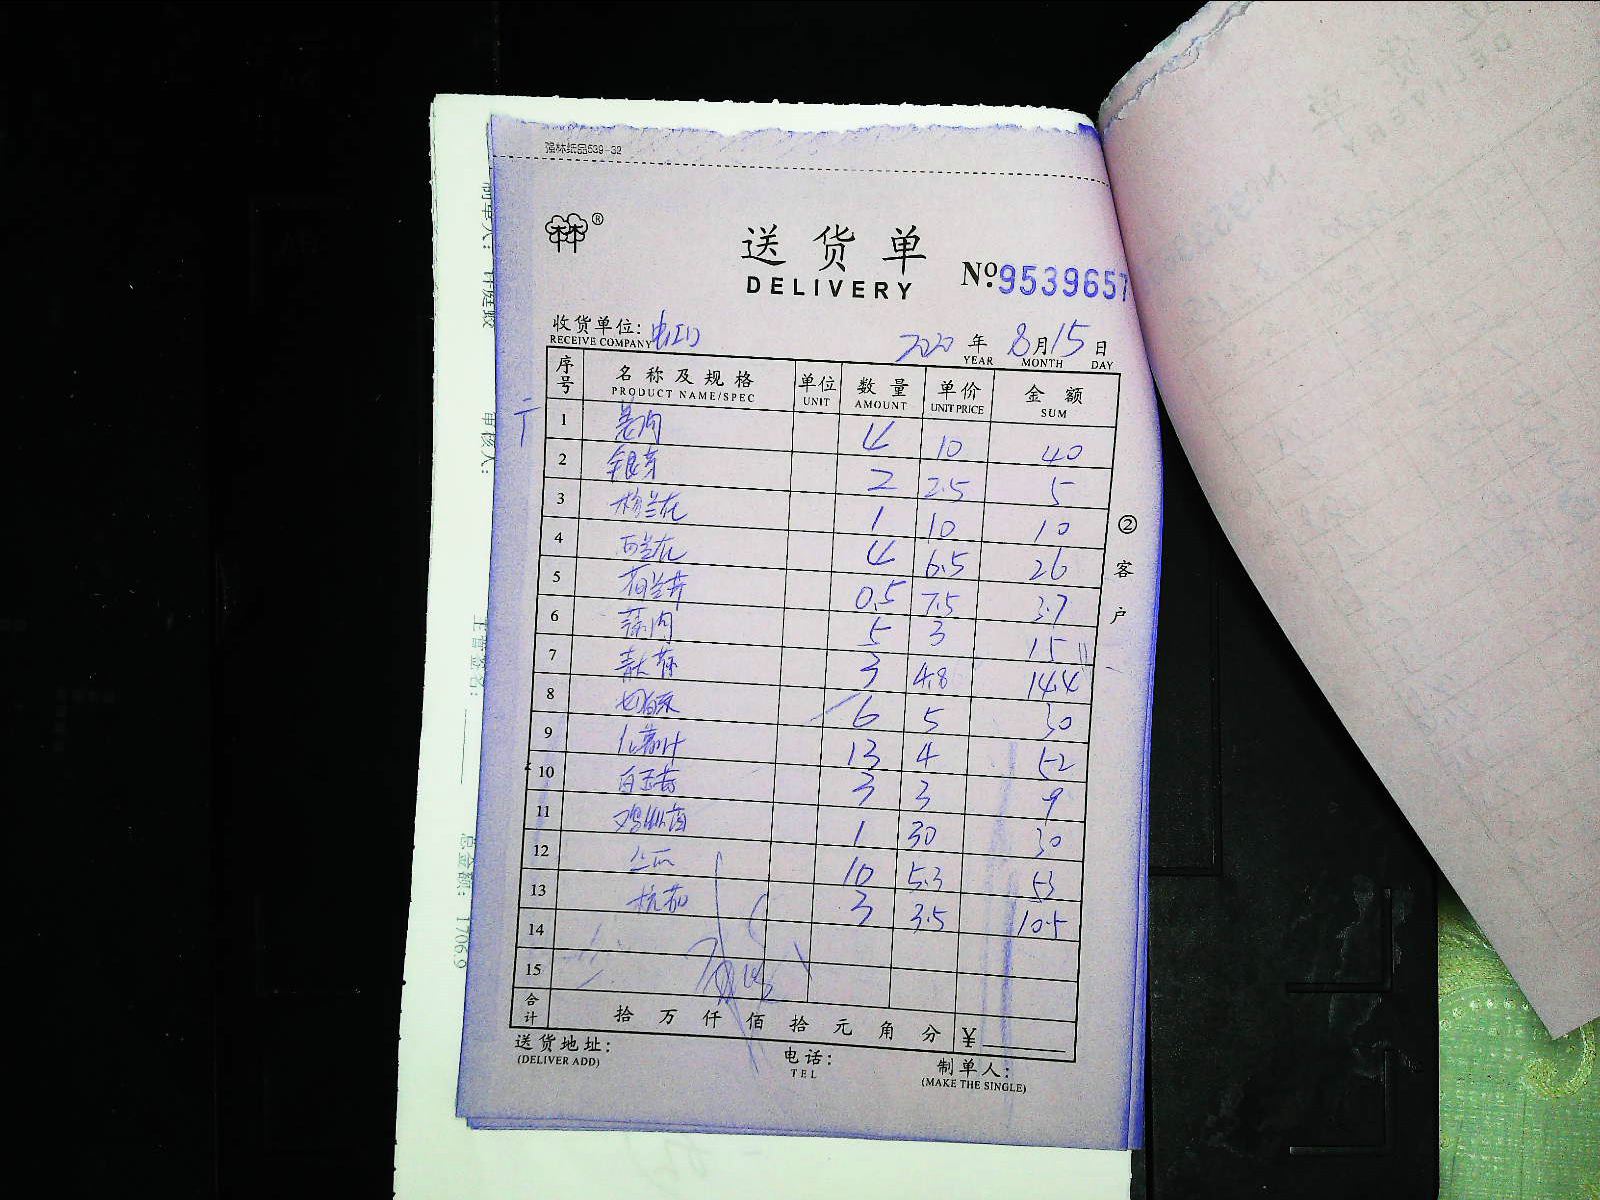 强林纸品539-32
®
送货单
DELIVERY
No.9539657
收货单位:
RECEIVE COMPANY
2020 年 8月15日
YEAR MONTH DAY
序号 名称及规格 单位 数量 单价 金额
PRODUCT NAME/SPEC UNIT AMOUNT UNIT PRICE SUM
1 姜肉 4 10 40
2 银芽 2 2.5 5
3 杨兰花 1 10 10
4 西兰花 4 6.5 26
5 荷兰芹 0.5 7.5 3.7
6 蒜肉 5 3 15
7 3 4.8 14.4
8 6 5 30
9 13 4 52
10 白玉菇 3 3 9
11 1 30 30
12 10 5.3 53
13 杭茄 3 3.5 10.5
14
15
合计 拾 万 仟 佰 拾 元 角 分 ¥
送货地址:
(DELIVER ADD)
电话:
TEL
制单人:
(MAKE THE SINGLE)
②客户
审核人:
主管签名:
总金额: 1706.9